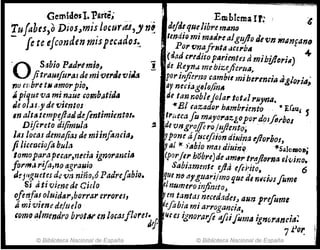 Gemidos I. Parte;
Tu sabes, ò Dios, mis locuras, y nò
se te esconden mis pecados.
O Sabio Padre mio, 1
si traueſuras de mi verde vida
no es bre tu amor pio,
à pique va mi naue combatida
de olas, y de vientos
en alta tempeſtad de ſentimientos.
Diſcreto diſsimula 2
las locas demaſias de mi infancia,
ſi licencioſa bula
tomo para pecar, necia ignorancia
forma riſa, no agrauio
de juguetes de vn niño, à Padre ſabio.
Si à ti viene de Cielo 3
ofenſas oluidar, borrar errores,
à mi viene de ſuelo
como almendro brotar en locas flores.
Emblema II. 6
deſde que libre mano
tendio mi madre al guſto de vn mançano
Por vna fruta acerba 4
(hàd credito parientes à mi hiſtoria)
de Reyna me hize ſierua,
por infierno cambiè mi herencia à gloria,
y necia goloſina
de tan noble ſolar total ruyna.
*El cazador hambriento * Eſau, 5
trueca ſu mayorazgo por dos ſorbos
de vn groſſero ſuſtento,
y pone à ſucceſsion diuina eſtorbos,
y al * ſabio mas diuino * Salomon;
(por ſer hõbre) de amor traſtorna el vino.
Sabiamente eſtà eſcrito, 6
que no ay guariſmo que de necios ſume
el numero infinito,
en tantas necedades, aun preſume
de ſabia mi arrogancia,
que es ignorarſe aſsi ſuma ignorancia.
7 Por
© Biblioteca Nacional de España
© Biblioteca Nacional de España